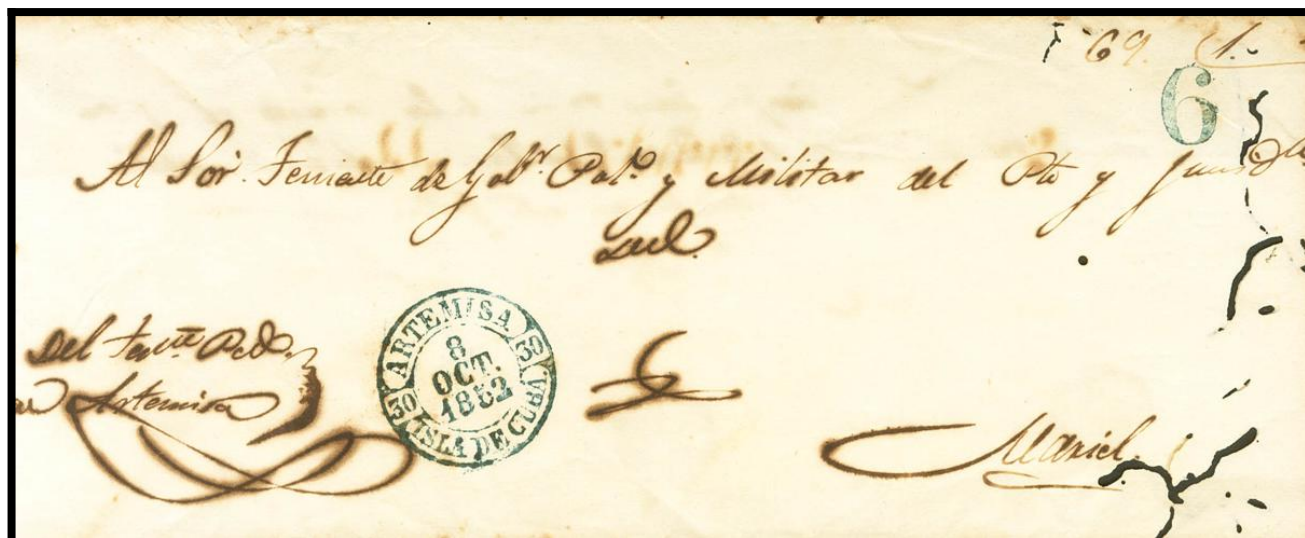 69. 1.
6
Al Sor. Teniente de Gobr. Polo. y Militar del Pto y
Del Tente. Pedo.
Artemisa
ARTEMISA
30 8 30
OCT.
1852
ISLA DE CUBA
Mariel.